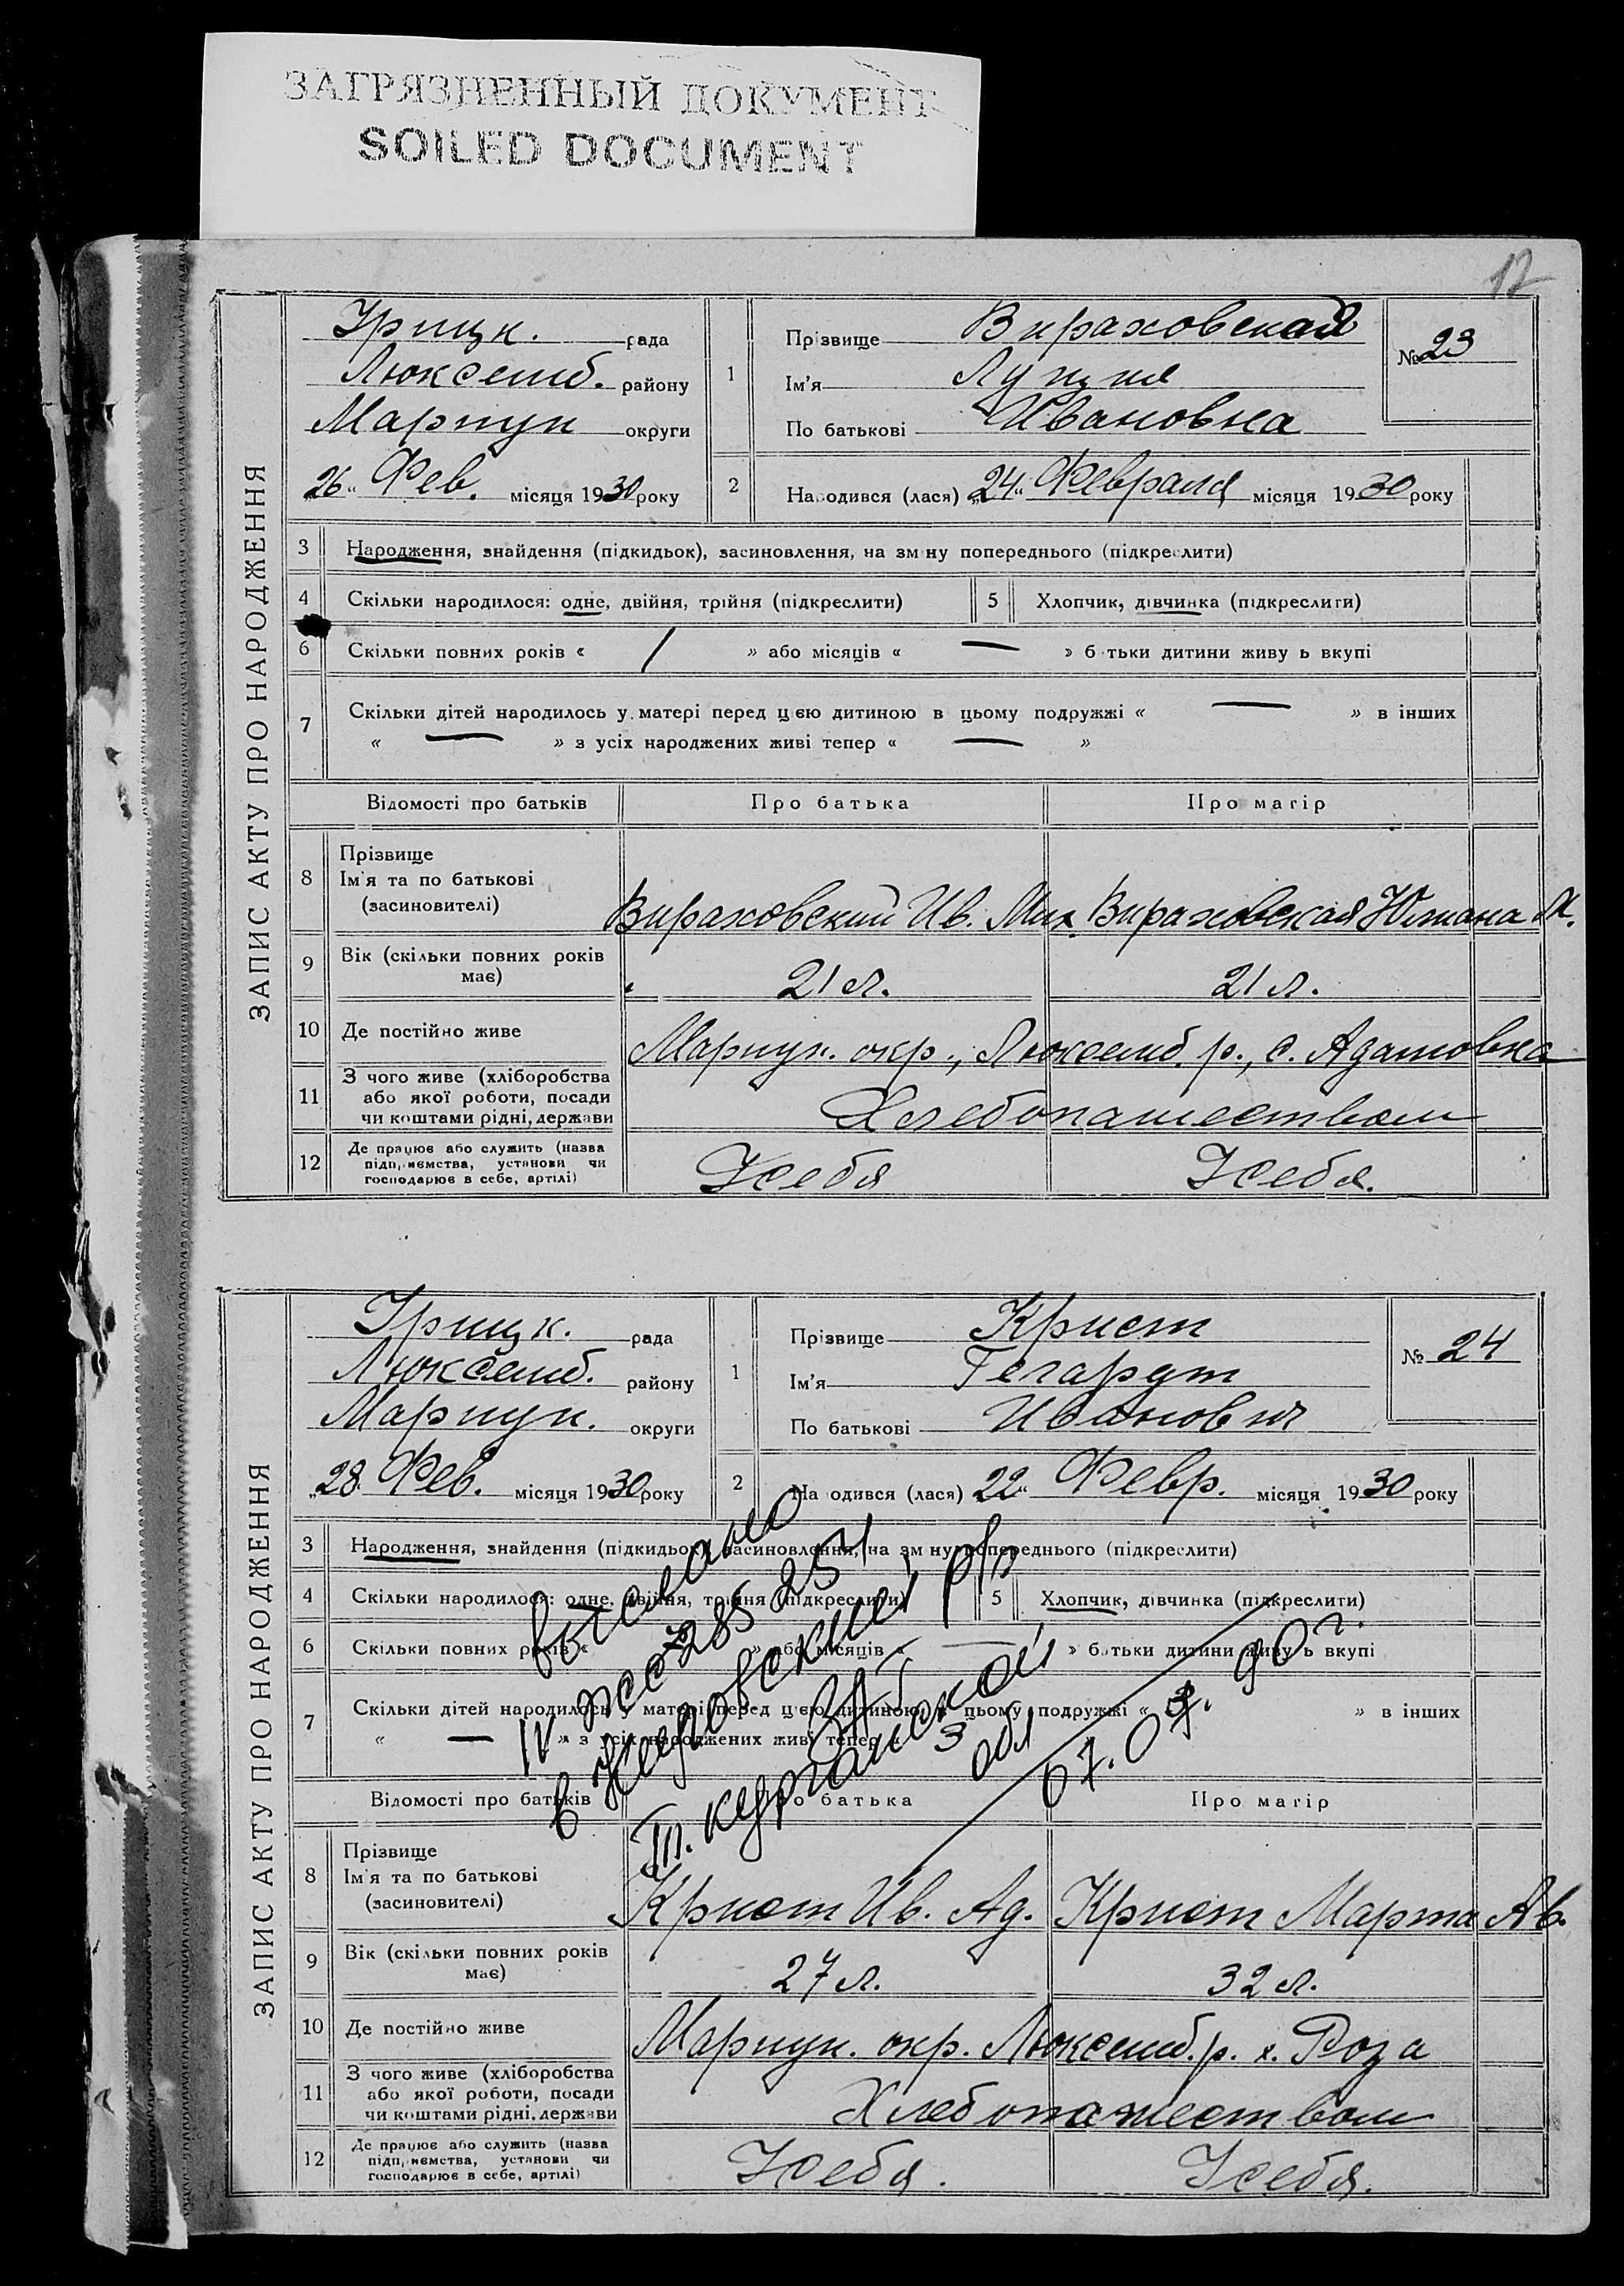 ЗАГРЯЗНЕННЫЙ ДОКУМЕНТ
SOILED DOCUMENT
12
ЗАПИС АКТУ ПРО НАРОДЖЕННЯ
Урицк. рада
Люксемб. району
Мариуп округи
„26“ Фев. місяця 1930 року
1 Прізвище Вираховская
Ім'я Луция
По батькові Ивановна
№ 23
2 Народився (лася) „24“ Февраля місяця 1930 року
3 Народження, знайдення (підкидьок), засиновлення, на зміну попереднього (підкреслити)
4 Скільки народилося: одне, двійня, трійня (підкреслити) 5 Хлопчик, дівчинка (підкреслити)
6 Скільки повних років « / » або місяців « — » батьки дитини живуть вкупі
7 Скільки дітей народилось у матері перед цією дитиною в цьому подружжі « — » в інших
« — » з усіх народжених живі тепер « — »
Відомості про батьків Про батька Про матір
8 Прізвище
Ім'я та по батькові
(засиновителі)
Вираховский Ив. Мих. Вираховская М.
9 Вік (скільки повних років має) 21 л. 21 л.
10 Де постійно живе Мариуп. окр., Люксемб. р., с. Адамовка
11 З чого живе (хліборобства
або якої роботи, посади
чи коштами рідні, держави
Хлебопашеством
12 Де працює або служить (назва
підприємства, установи чи
господарює в себе, артілі)
У себя У себя.
ЗАПИС АКТУ ПРО НАРОДЖЕННЯ
Урицк. рада
Люксемб. району
Мариуп. округи
„28“ Фев. місяця 1930 року
1 Прізвище Крист
Ім'я Гегардт
По батькові Иванович
№ 24
2 Народився (лася) 22“ Февр. місяця 1930 року
3 Народження, знайдення (підкидьок), засиновлення, на зміну попереднього (підкреслити)
4 Скільки народилося: одне, двійня, трійня (підкреслити) 5 Хлопчик, дівчинка (підкреслити)
6 Скільки повних років « » або місяців « — » батьки дитини живуть вкупі
7 Скільки дітей народилось у матері перед цією дитиною в цьому подружжі « » в інших
« — » з усіх народжених живі тепер «
выслано
в Кировский р/о
ЗАГС
Т. Курганской
обл
07.03.90 г.
Відомості про батьків Про батька Про матір
8 Прізвище
Ім'я та по батькові
(засиновителі)
Крист Ив. Ад. Крист Марта Ав.
9 Вік (скільки повних років має) 27 л. 32 л.
10 Де постійно живе Мариуп. окр. Люксемб. р. х. Роза
11 З чого живе (хліборобства
або якої роботи, посади
чи коштами рідні, держави
Хлебопашеством
12 Де працює або служить (назва
підприємства, установи чи
господарює в себе, артілі)
У себя. У себя.